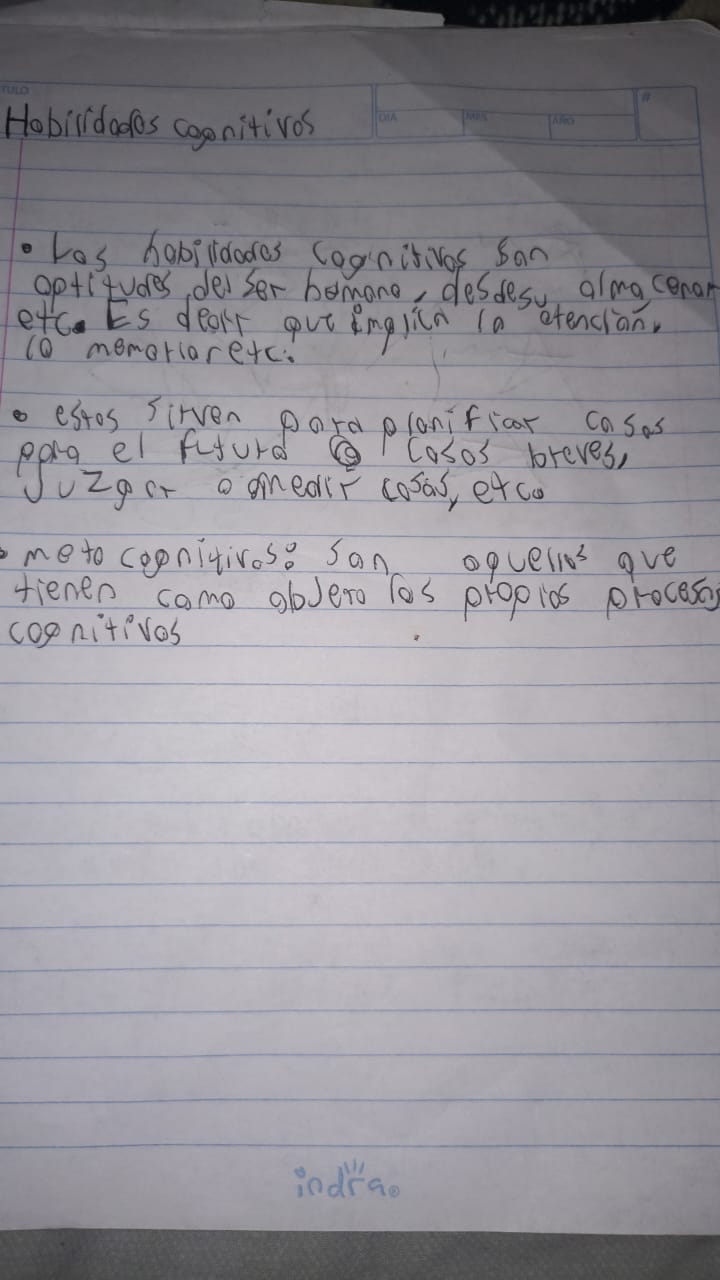 TULO
#
DIA MES AÑO
Habilidades cognitivas
• Las habilidades cognitivas san
aptitudes del ser homano, desdesu almacenar
etc. Es decir que implica la atención,
la memoriaretc.
• estas sirven para planificar casas
para el futura o casos breves,
Juzgar o medir cosas, etc.
• meta cognitivas: san aquellas que
tienen camo objero las propias procesos
cognitivos
indra